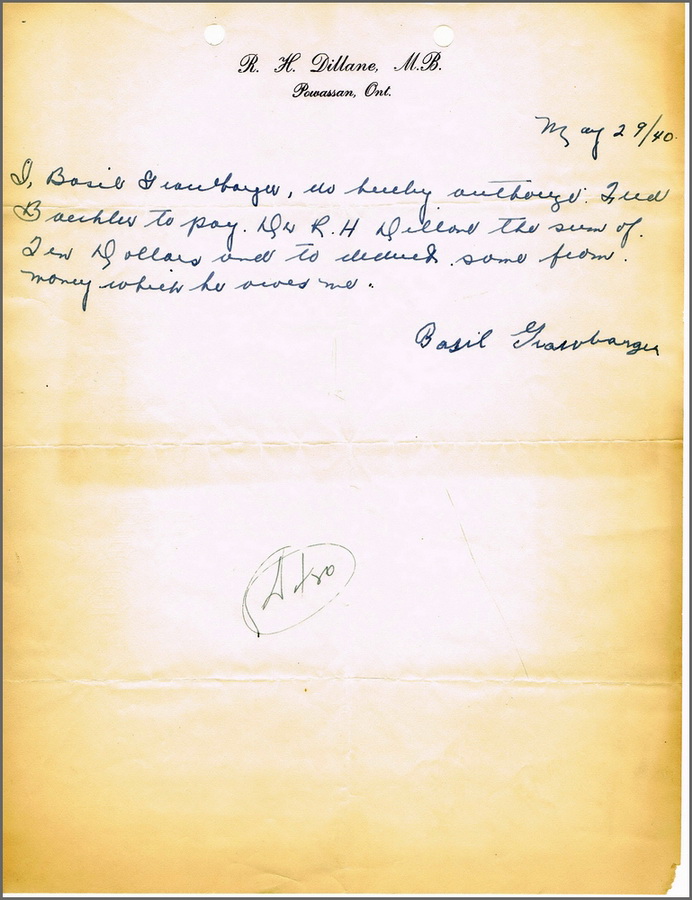 R. H. Dillane, M.B.
Powassan, Ont.
May 29/40
I, Basil Grawbarger, do hereby authorize Fred
Baechler to pay. Dr R. H Dillane the sum of.
Ten Dollars and to deduct same from.
money which he owes me.
Basil Grawbarger